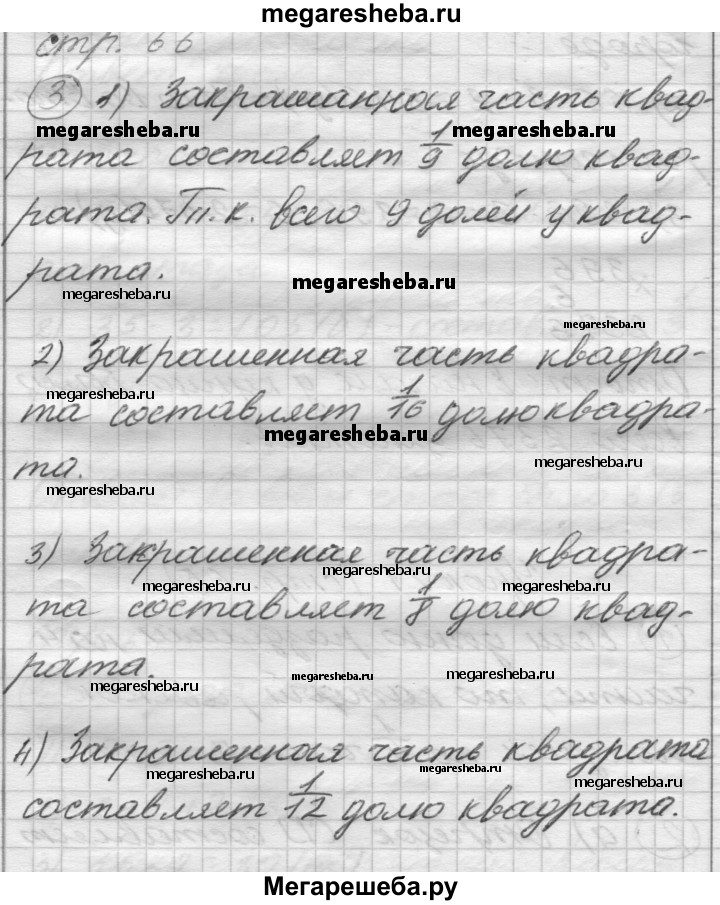 megaresheba.ru
стр. 66
③ 1) Закрашанная часть квад-
megaresheba.ru megaresheba.ru
рата составляет 1/9 долю квад-
рата. Т.к. всего 9 долей у квад-
рата.
megaresheba.ru
megaresheba.ru
megaresheba.ru
2) Закрашенная часть квадра-
megaresheba.ru
та составляет 1/16 долю квадра-
megaresheba.ru
та.
megaresheba.ru
megaresheba.ru
3) Закрашенная часть квадра-
megaresheba.ru
megaresheba.ru megaresheba.ru
та составляет 1/8 долю квад-
рата.
megaresheba.ru megaresheba.ru megaresheba.ru
4) Закрашенная часть квадрата
megaresheba.ru megaresheba.ru megaresheba.ru
составляет 1/12 долю квадрата.
Мегарешеба.ру